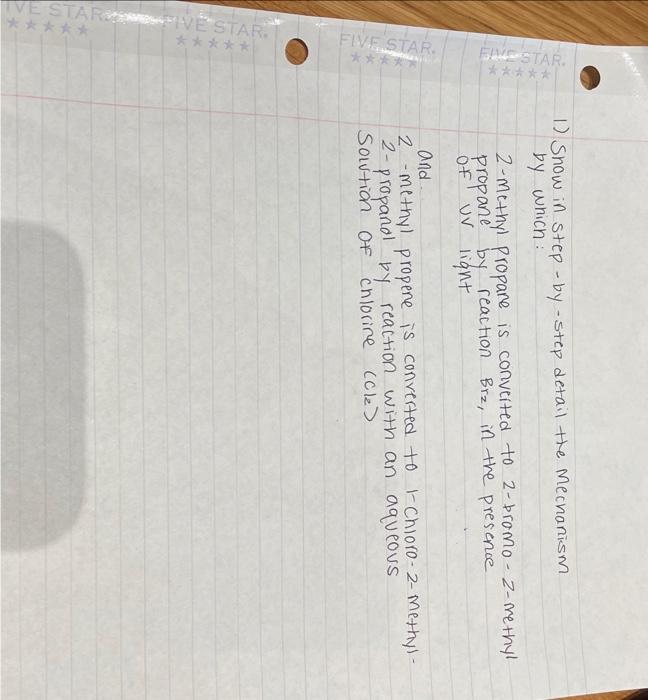 VE STAR
FIVE STAR.
FIVE STAR.
FIVE STAR.
1) Show in step-by-step detail the Mechanism
by which:
2-methyl propane is converted to 2-bromo-2-methyl
propane by reaction Br2, in the presence
of UV light
and..
2-methyl propene is converted to 1-chloro-2-methyl-
2-propanol by reaction with an aqueous
solution of chlorine (Cl2)